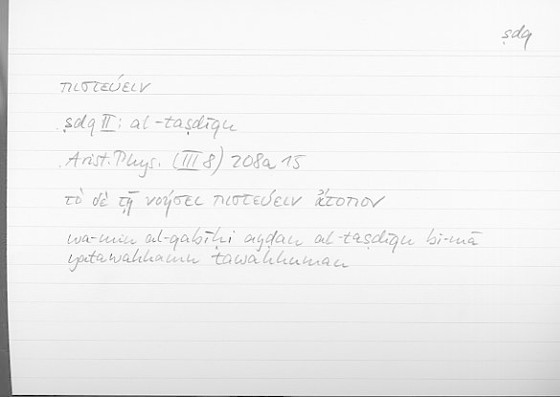 ṣdq
πιστεύειν
ṣdq II: al-taṣdīqu
Arist. Phys. (III 8) 208a 15
τὸ δὲ τῇ νοήσει πιστεύειν ἄτοπον
wa-min al-qabīḥi ayḍan al-taṣdīqu bi-mā
yatawahhamu tawahhuman